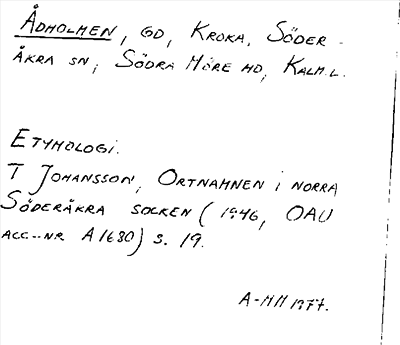 ÅDHOLMEN, GD, KROKA, SÖDER-
ÅKRA SN, SÖDRA MÖRE HD, KALM.L.
ETYMOLOGI.
T JOHANSSON, ORTNAMNEN I NORRA
SÖDERÅKRA SOCKEN (1946, OAU
ACC.-NR A1680) S. 19.
A-MH 1977.